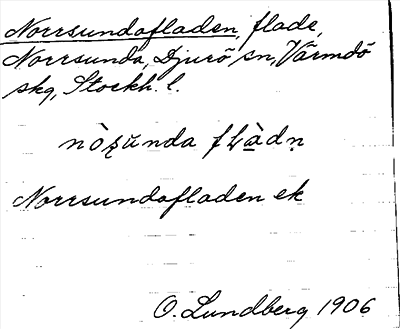 Norrsundafladen, flade,
Norrsunda, Djurö sn, Värmdö
skg, Stockh. l.
nòʂunda flàdn̥
Norrsundafladen ek
O. Lundberg 1906